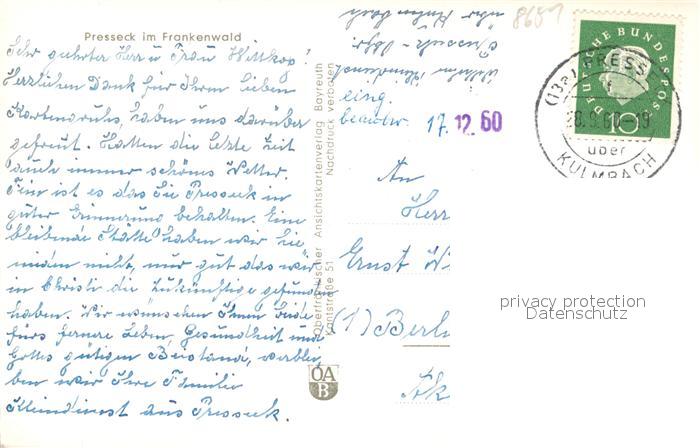 Presseck im Frankenwald
Sehr geehrter Herr u. Frau Wittkop!
Herzlichen Dank für Ihren lieben
Kartengruß, haben uns darüber
gefreut. Hatten die letzte Zeit
auch immer schönes Wetter.
Fein ist es das Sie Presseck in
guter Erinnerung behalten. Eine
bleibende Stätte haben wir hie
nieden nicht, nur gut das wir
in Christi die Zukünftige gefunden
haben. Wir wünschen Ihnen beide
fürs fernere Leben, Gesundheit und
Gottes gütigen Beistand, verblei
ben wir Ihre Familie
Kleindienst aus Presseck.
Oberfränkischer Ansichtskartenverlag Bayreuth
Kantstraße 51 Nachdruck verboten
OA
B
Wilhelm Kleindienst
Presseck
über Kulmbach
8689
eing.
beantw. 17.12.60
DEUTSCHE BUNDESPOST
10
(13a) PRESS
28.9.60-19
über
KULMBACH
An
Herr
Ernst Wi
(1) Berl
privacy protection
Datenschutz